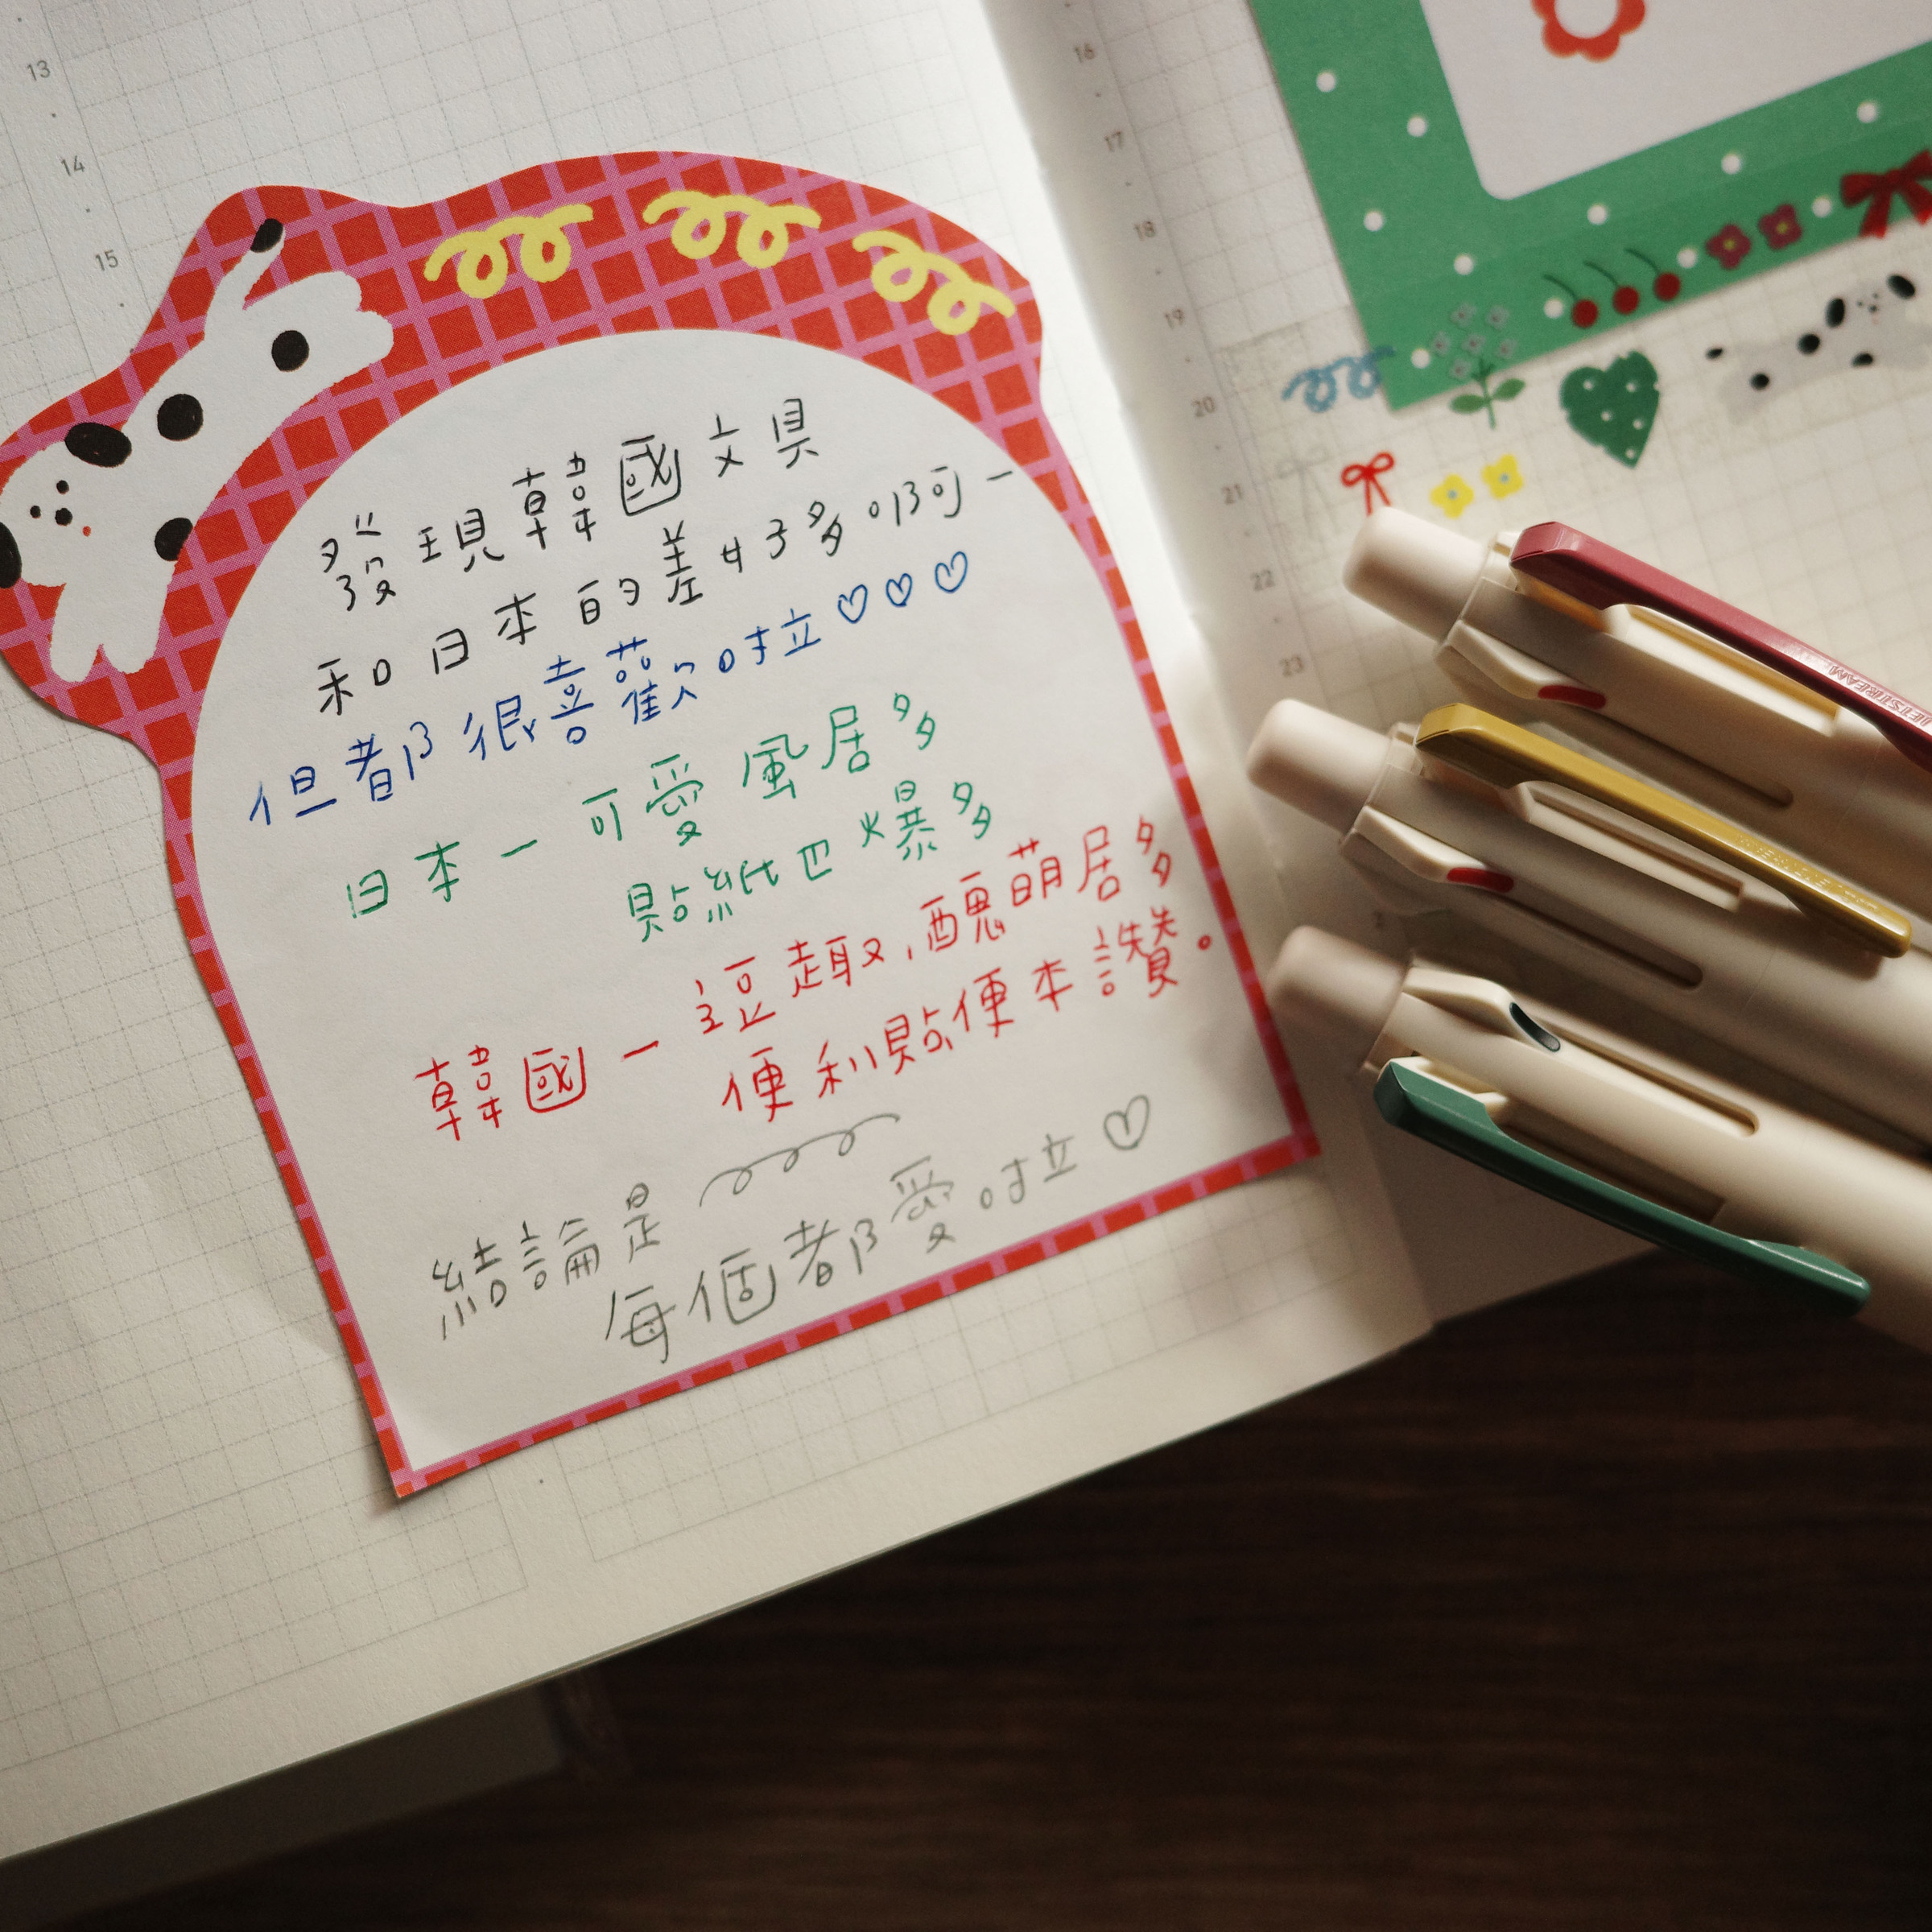 13
14
15
發現韓國文具
和日本的差好多啊一
但都很喜歡啦♡♡♡
日本一可愛風居多
貼紙也爆多
韓國一逗趣,醜萌居多
便利貼,便本讚。
結論是
每個都愛啦♡
16
17
18
19
20
21
22
23
JETSTREAM